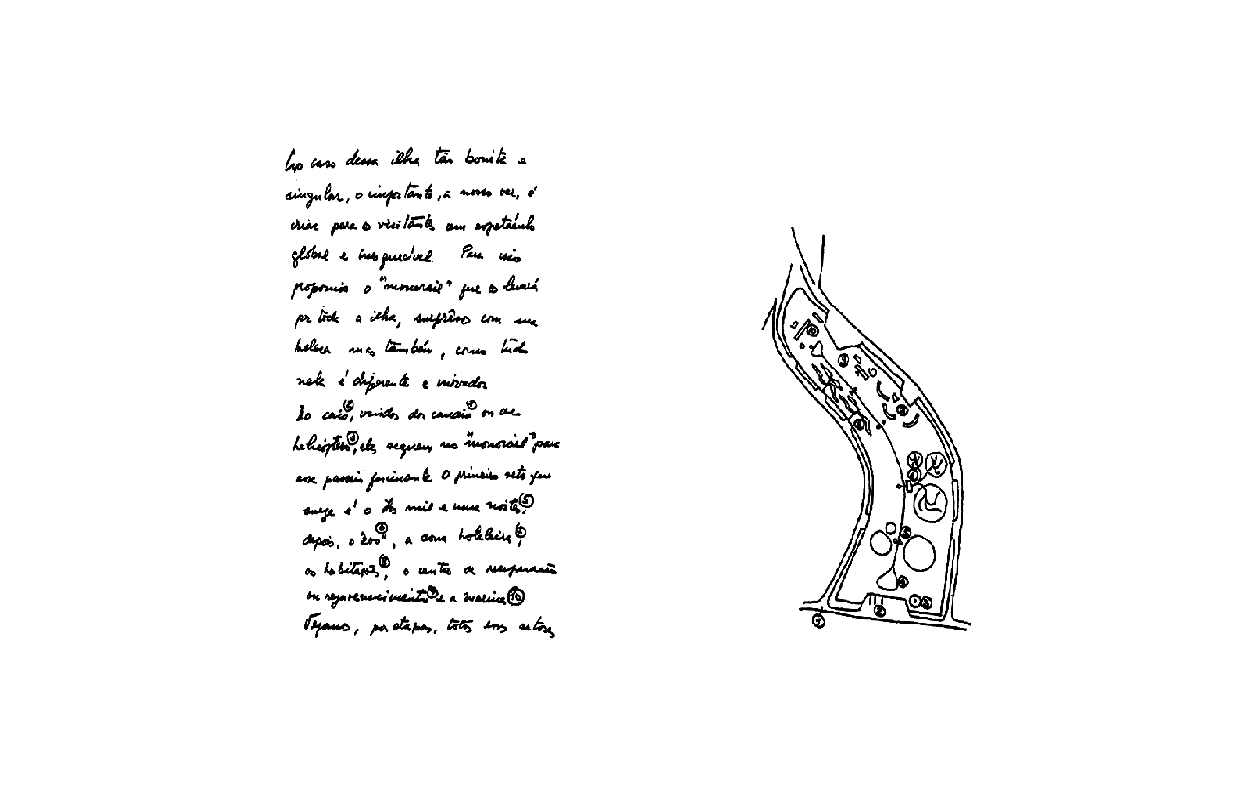 No caso dessa ilha tão bonita e
singular, o importante, a nosso ver, é
criar para o visitante um espetáculo
global e inesquecível. Para isso
propomos o "monorail" que os levará
por toda a ilha, surprêsos com sua
beleza mas também, como tudo
nela é diferente e inovador
Do cais, vindos dos canais ou de
helicóptero, eles seguem no "monorail" para
esse passeio fascinante O primeiro setor que
surge é o das mil e uma noites
depois, o "zoo", a zona hoteleira,
as habitações, o centro de recuperação
ou rejuvenescimento e a marina 10
Vejamos, por etapas, todos esses setores